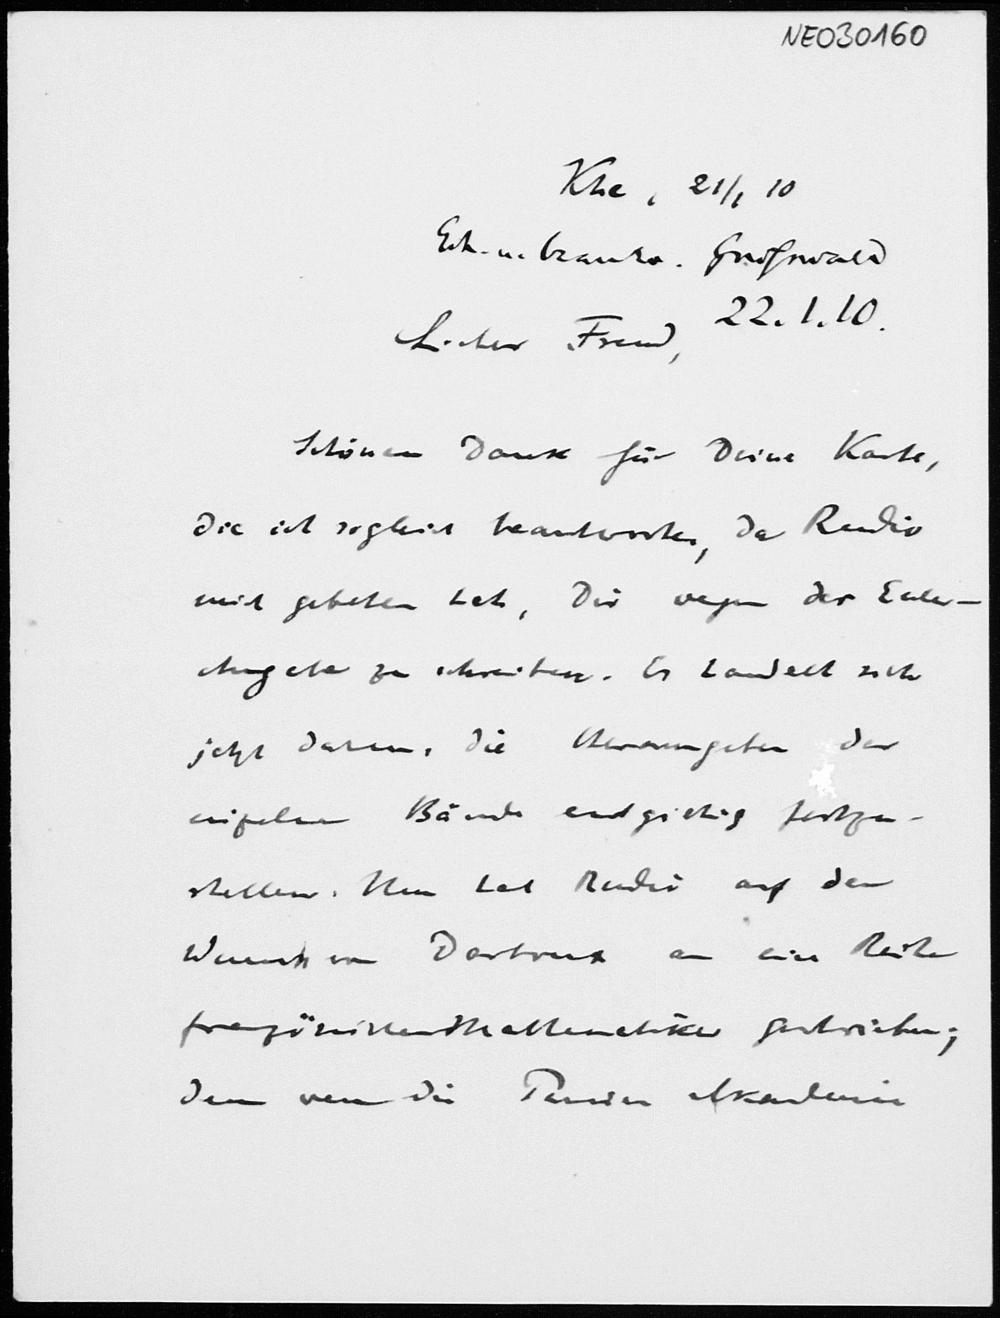 NE030160
Khe, 21/1 10
Erh. u. beantw. Greifswald
22.1.10.
Lieber Freund,
Schönen Dank für Deine Karte,
die ich sogleich beantworte, da Rudio
mich gebeten hat, Dir wegen der Euler-
Ausgabe zu schreiben. Es handelt sich
jetzt darum, die Herausgeber der
einzelnen Bände endgiltig festzu-
stellen. Nun hat Rudio auf den
Wunsch von Darboux an eine Reihe
französischer Mathematiker geschrieben;
denn wenn die Pariser Akademie